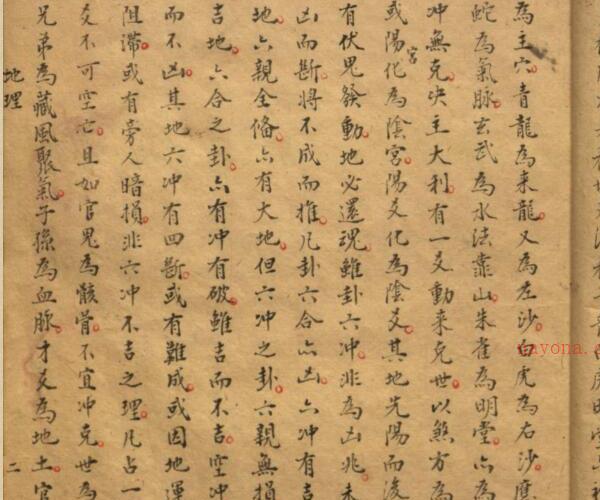 為主穴青龍為来龍又為左沙白虎為右沙塍
蛇為氣脉玄武為水法靠山朱雀為明堂六為
冲無克决主大利有一爻動来克世以煞方為
或陽宮化為陰宮陽爻化為陰爻其地先陽而後
有伏鬼發動地必還魂雖卦六冲非為凶兆未
凶而断將不成而推凡卦六合亦凶六冲有吉
地六親全俻亦有大地但六冲之卦六親無損
吉地六合之卦亦有冲有破雖吉而不吉空冲
而不凶其地六冲有四断或有難成或因地運
阻滯或有旁人暗損非六冲不吉之理凡占一
爻不可空亡且如官鬼為骸骨不宜冲克世為
兄弟為藏風聚氣子孫為血脉才爻為地土官
地理
二